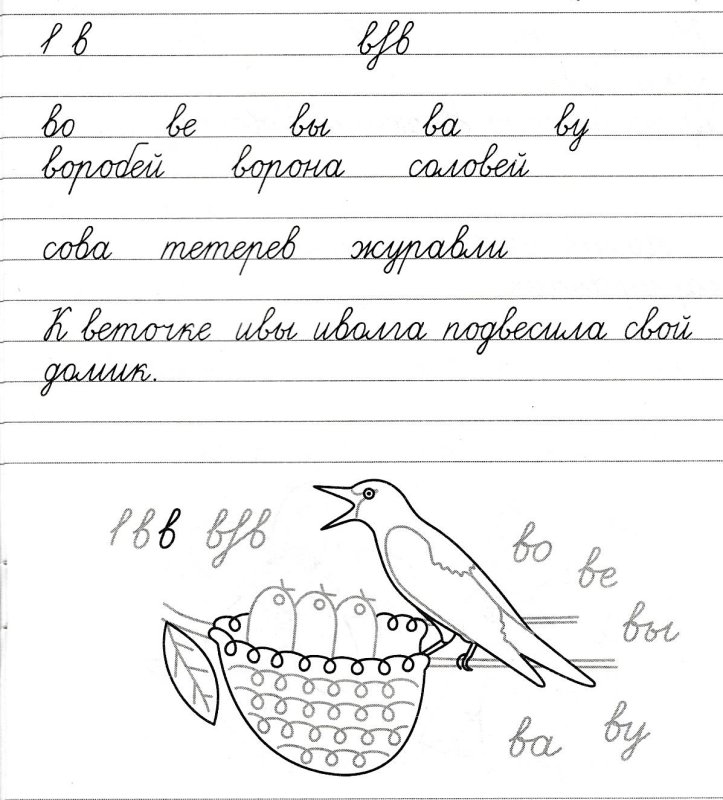 в вѕв
во ве вы ва ву
воробей ворона соловей
сова тетерев журавли
К веточке ивы иволга подвесила свой
домик.
в в
во
ве
вы
ву
ва